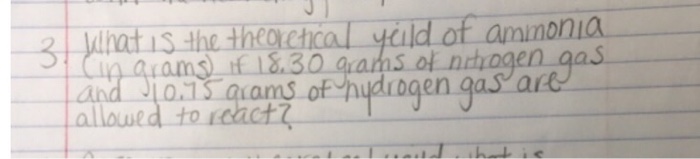 3. What is the theoretical yeild of ammonia
(in grams) if 18.30 grams of nitrogen gas
and 10.75 grams of hydrogen gas are
allowed to react?